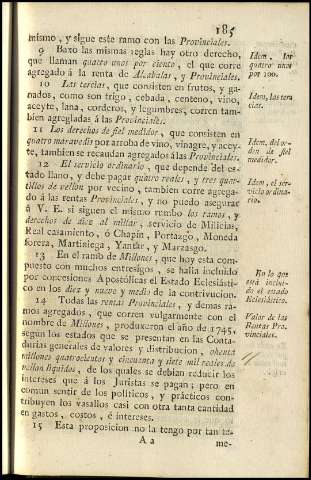 185
mismo, y sigue este ramo con las Provinciales.
9 Baxo las mismas reglas hay otro derecho,
que llaman quatro unos por ciento, el que corre
agregado á la renta de Alcabalas, y Provinciales.
Idem, los
quatro unos
por 100.
10 Las tercias, que consisten en frutos, y ga-
nados, como son trigo, cebada, centeno, vino,
aceyte, lana, corderos, y legumbres, corren tam-
bien agregladas á las Provinciales.
Idem, las ter-
cias.
11 Los derechos de fiel medidor, que consisten en
quatro maravedis por arroba de vino, vinagre, y acey-
te, tambien se recaudan agregados á las Provinciales.
Idem, del or-
den de fiel
medidor.
12 El servicio ordinario, que depende del es-
tado llano, y debe pagar quatro reales, y tres quar-
tillos de vellon por vecino, tambien corre agrega-
do á las rentas Provinciales, y no puedo asegurar
á V. E. si siguen el mismo rumbo los ramos, y
derechos de diez al millar, servicio de Milicias,
Real casamiento, ó Chapin, Portazgo, Moneda
foreza, Martiniega, Yantar, y Marzasgo.
Idem, el ser-
vicio ordina-
rio.
13 En el ramo de Millones, que hoy esta com-
puesto con muchos entresigos, se halla incluido
por concesiones Apostólicas el Estado Eclesiásti-
co en los diez y nueve y medio de la contrivucion.
En lo que
está inclui-
do el estado
Eclesiástico.
14 Todas las rentas Provinciales, y demas ra-
mos agregados, que corren vulgarmente con el
nombre de Millones, produxeron el año de 1745,
según los estados que se presentan en las Conta-
durias generales de valores y distribucion, ohenta
millones quatrocientos y cincuenta y siete mil reales de
vellon líquidos, de los quales se debian reducir los
intereses que á los Juristas se pagan; pero en
comun sentir de los políticos, y prácticos con-
tribuyen los vasallos casi con otra tanta cantidad
en gastos, costos, é intereses.
Valor de las
Rentas Pro-
vinciales.
15 Esta proposicion no la tengo por tan
A a
me-